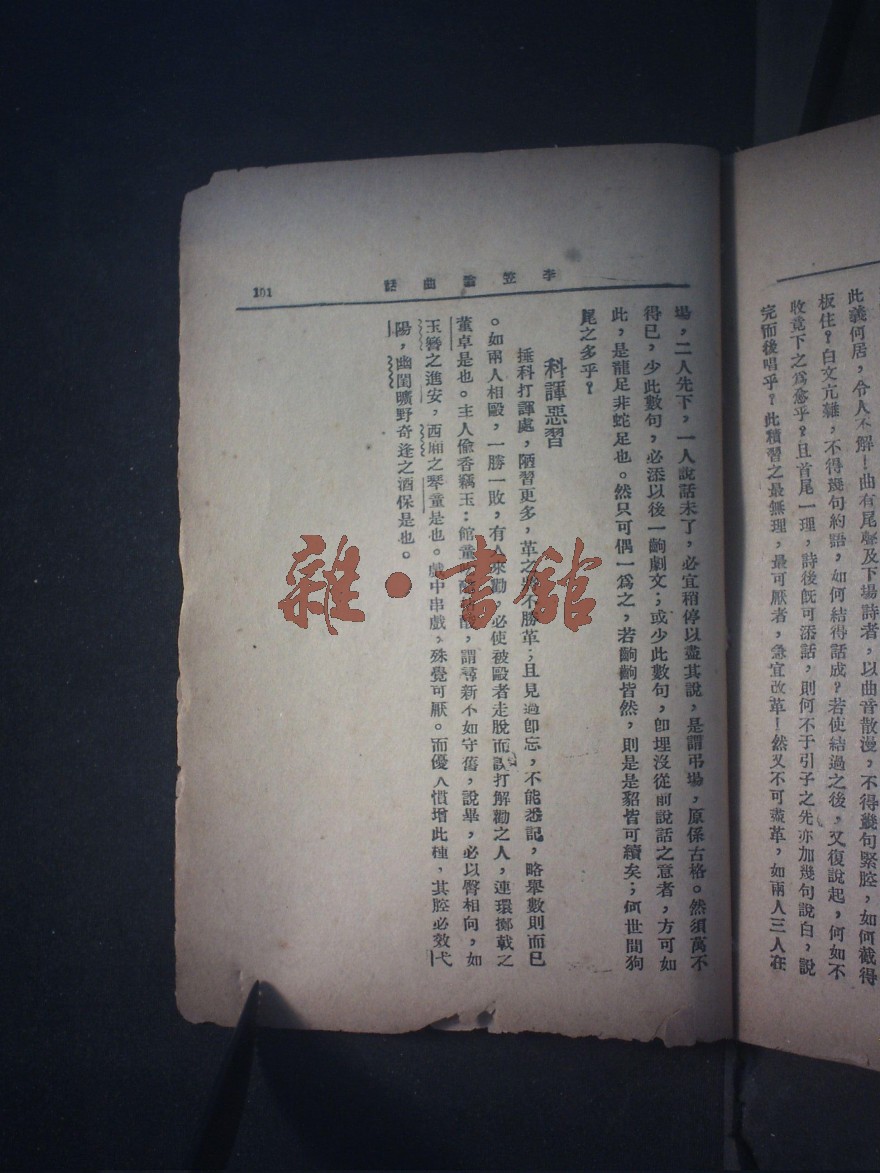 此義何居，令人不解！曲有尾聲及下場詩者，以曲音散漫，不得幾句緊腔，如何截得
板住？白文冗雜，不得幾句約語，如何結得話成？若使結過之後，又復說起，何如不
收竟下之爲愈乎？且首尾一理，詩後既可添話，則何不于引子之先亦加幾句說白，說
完而後唱乎？此積習之最無理，最可厭者，急宜改革！然又不可盡革，如兩人三人在
李笠翁曲話
101
場，二人先下，一人說話未了，必宜稍停以盡其說，是謂弔場，原係古格。然須萬不
得已，少此數句，必添以後一齣劇文；或少此數句，卽埋沒從前說話之意者，方可如
此，是龍足非蛇足也。然只可偶一爲之，若齣齣皆然，則是是貂皆可續矣；何世間狗
尾之多乎？
科諢惡習
插科打諢處，陋習更多，革之將不勝革；且見過卽忘，不能悉記，略舉數則而已
。如兩人相毆，一勝一敗，有人來勸，必使被毆者走脫而誤打解勸之人，連環擲戟之
董卓是也。主人偸香竊玉；館童 謂尋新不如守舊，說畢，必以臀相向，如
玉簪之進安，西廂之琴童是也。戲中串戲，殊覺可厭。而優人慣增此種，其腔必效弋
陽，幽閨曠野奇逢之酒保是也。
雜·書館